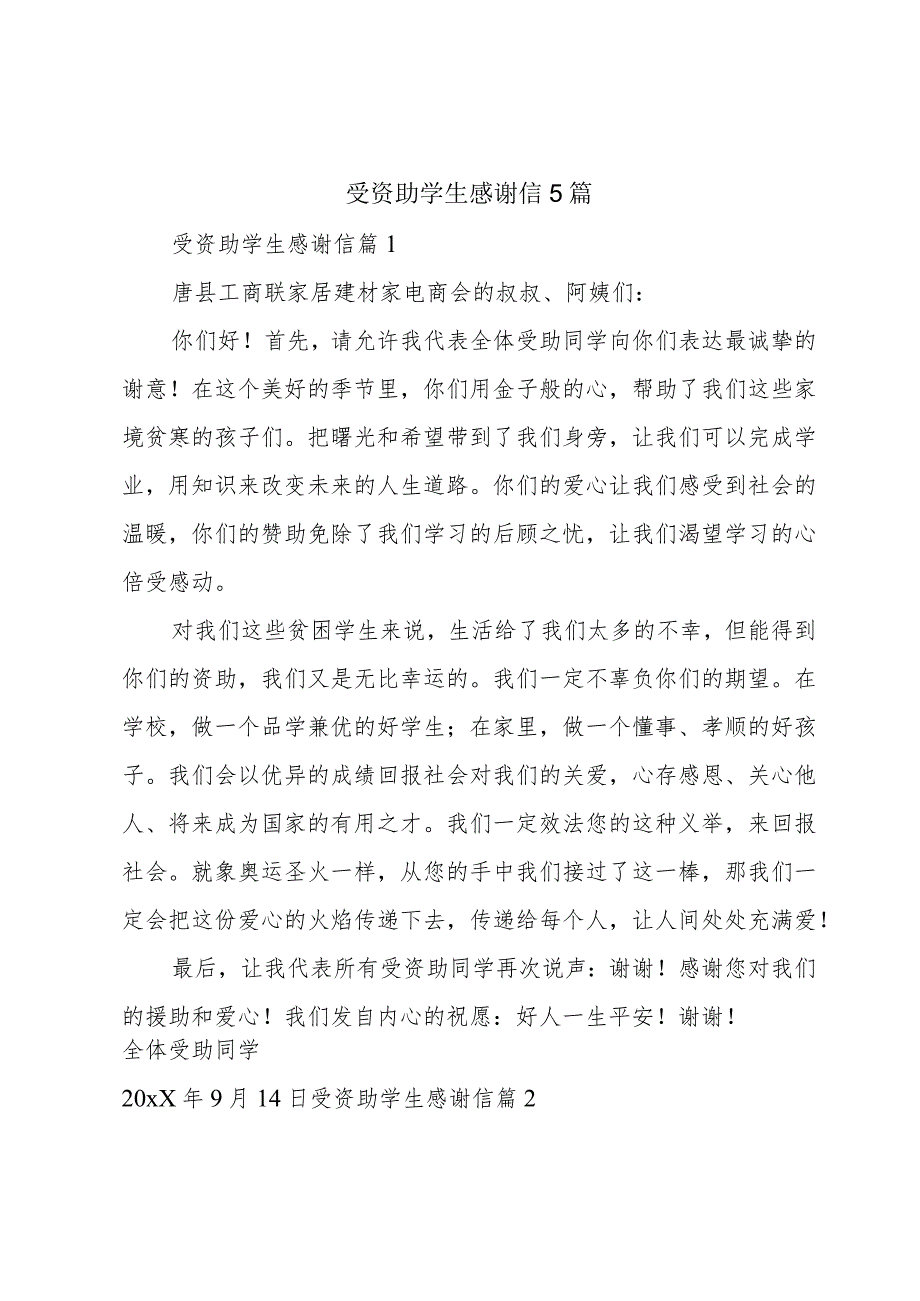 受资助学生感谢信 5 篇
受资助学生感谢信篇 1
唐县工商联家居建材家电商会的叔叔、阿姨们：
你们好！首先，请允许我代表全体受助同学向你们表达最诚挚的
谢意！在这个美好的季节里，你们用金子般的心，帮助了我们这些家
境贫寒的孩子们。把曙光和希望带到了我们身旁，让我们可以完成学
业，用知识来改变未来的人生道路。你们的爱心让我们感受到社会的
温暖，你们的赞助免除了我们学习的后顾之忧，让我们渴望学习的心
倍受感动。
对我们这些贫困学生来说，生活给了我们太多的不幸，但能得到
你们的资助，我们又是无比幸运的。我们一定不辜负你们的期望。在
学校，做一个品学兼优的好学生；在家里，做一个懂事、孝顺的好孩
子。我们会以优异的成绩回报社会对我们的关爱，心存感恩、关心他
人、将来成为国家的有用之才。我们一定效法您的这种义举，来回报
社会。就象奥运圣火一样，从您的手中我们接过了这一棒，那我们一
定会把这份爱心的火焰传递下去，传递给每个人，让人间处处充满爱！
最后，让我代表所有受资助同学再次说声：谢谢！感谢您对我们
的援助和爱心！我们发自内心的祝愿：好人一生平安！谢谢！
全体受助同学
20xX 年 9 月 14 日受资助学生感谢信篇 2